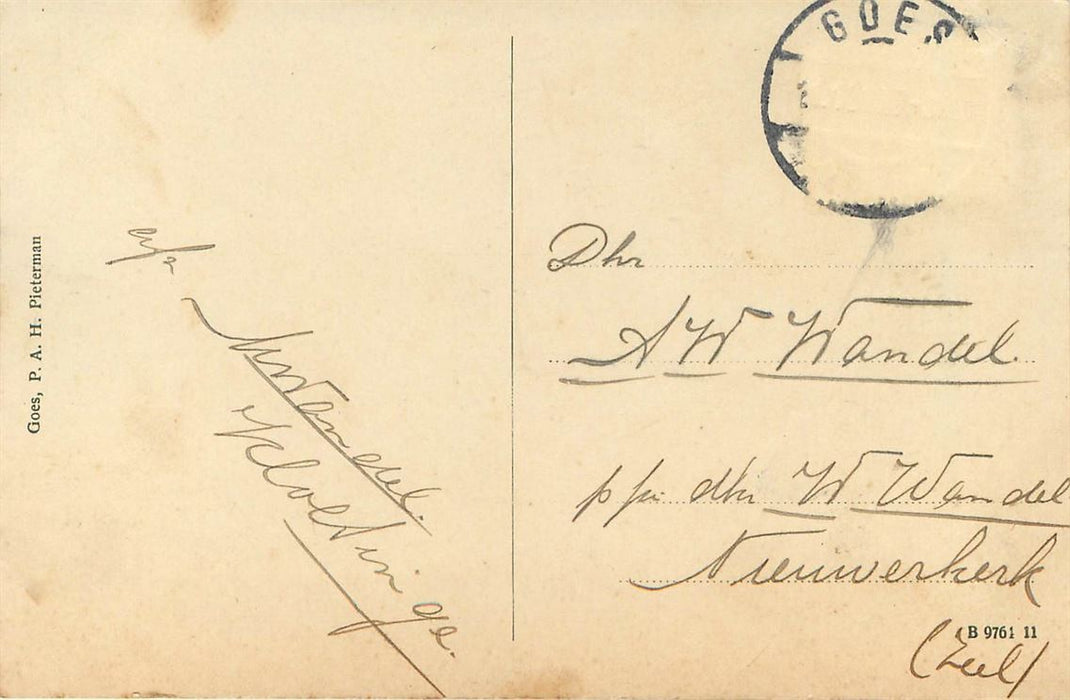 Goes, P. A. H. Pieterman
Wandel.
Kloetinge.
GOES
Dhr
A W Wandel.
p/a dhr W Wandel
Nieuwerkerk
B 9761 11
(Zeel)